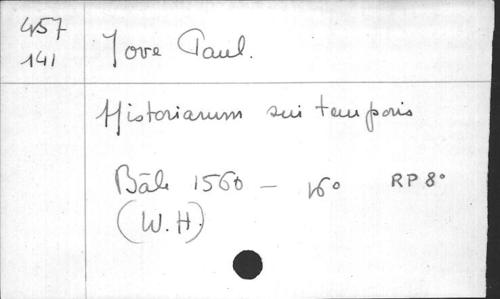 457
141
Jove Paul.
Historiarum sui temporis
Bâle 1560 — 16° RP 8°
(W.H).